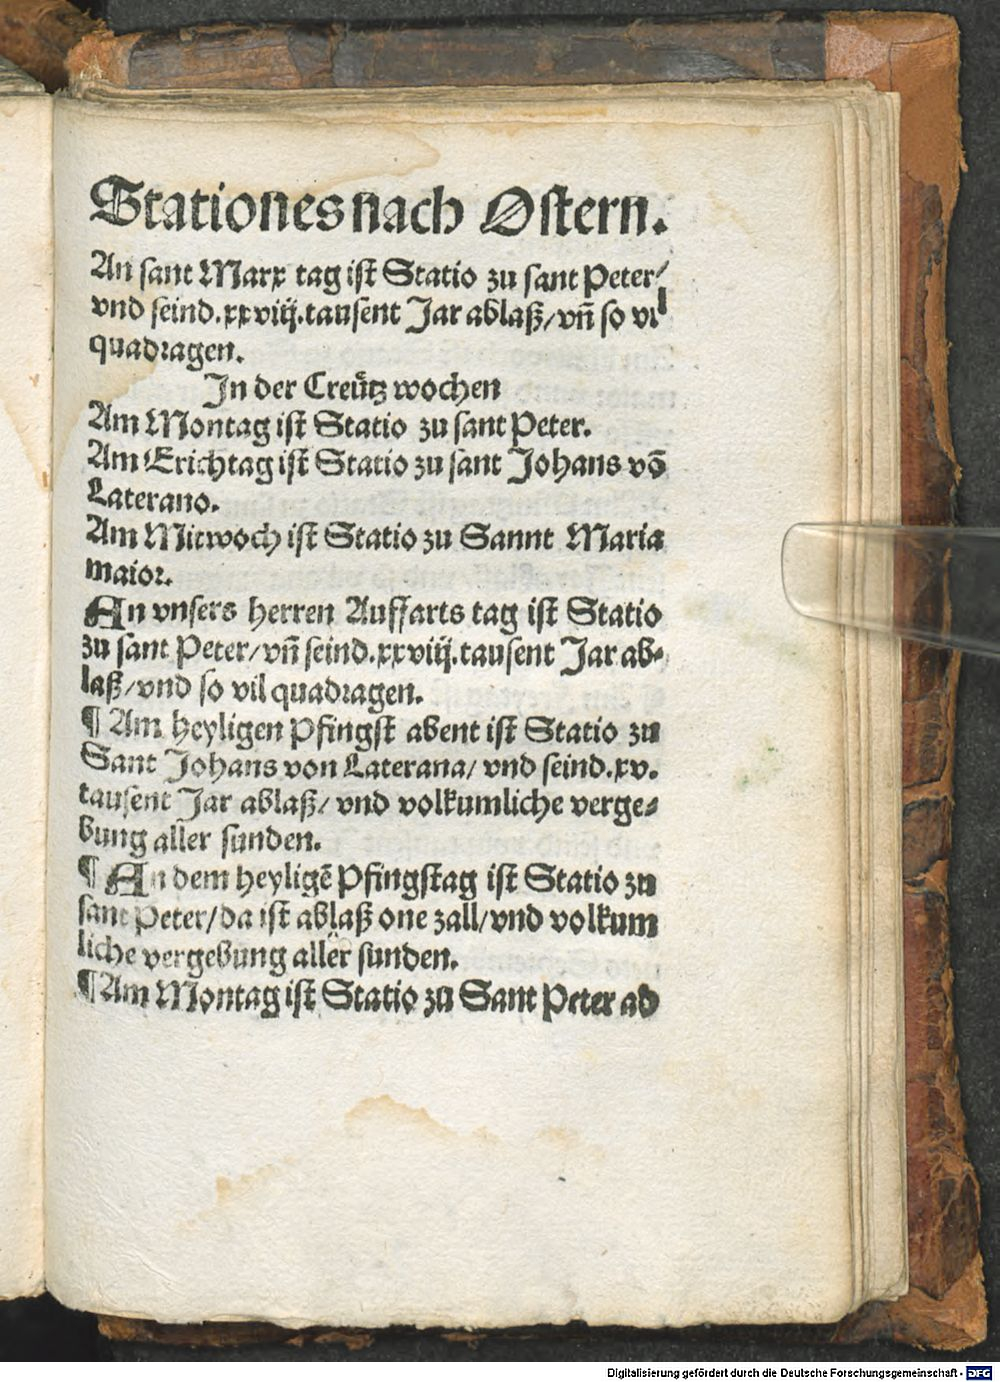 Stationes nach Ostern.
An sant Marx tag ist Statio zu sant Peter/
vnd seind.xxviij.tausent Jar ablaß/vn̄ so vil
quadragen.
In der Creütz wochen
Am Montag ist Statio zu sant Peter.
Am Erichtag ist Statio zu sant Johans vō
Laterano.
Am Mitwoch ist Statio zu Sannt Maria
maior.
An vnsers herren Auffarts tag ist Statio
zu sant Peter/vn̄ seind.xxviij.tausent Jar ab-
laß/vnd so vil quadragen.
¶ Am heyligen Pfingst abent ist Statio zu
Sant Johans von Laterana/ vnd seind.xv.
tausent Jar ablaß/ vnd volkumliche verge-
bung aller sunden.
¶ An dem heyligē Pfingstag ist Statio zu
sant Peter/da ist ablaß one zall/vnd volkum
liche vergebung aller sunden.
¶Am Montag ist Statio zu Sant Peter ad
Digitalisierung gefördert durch die Deutsche Forschungsgemeinschaft - DFG